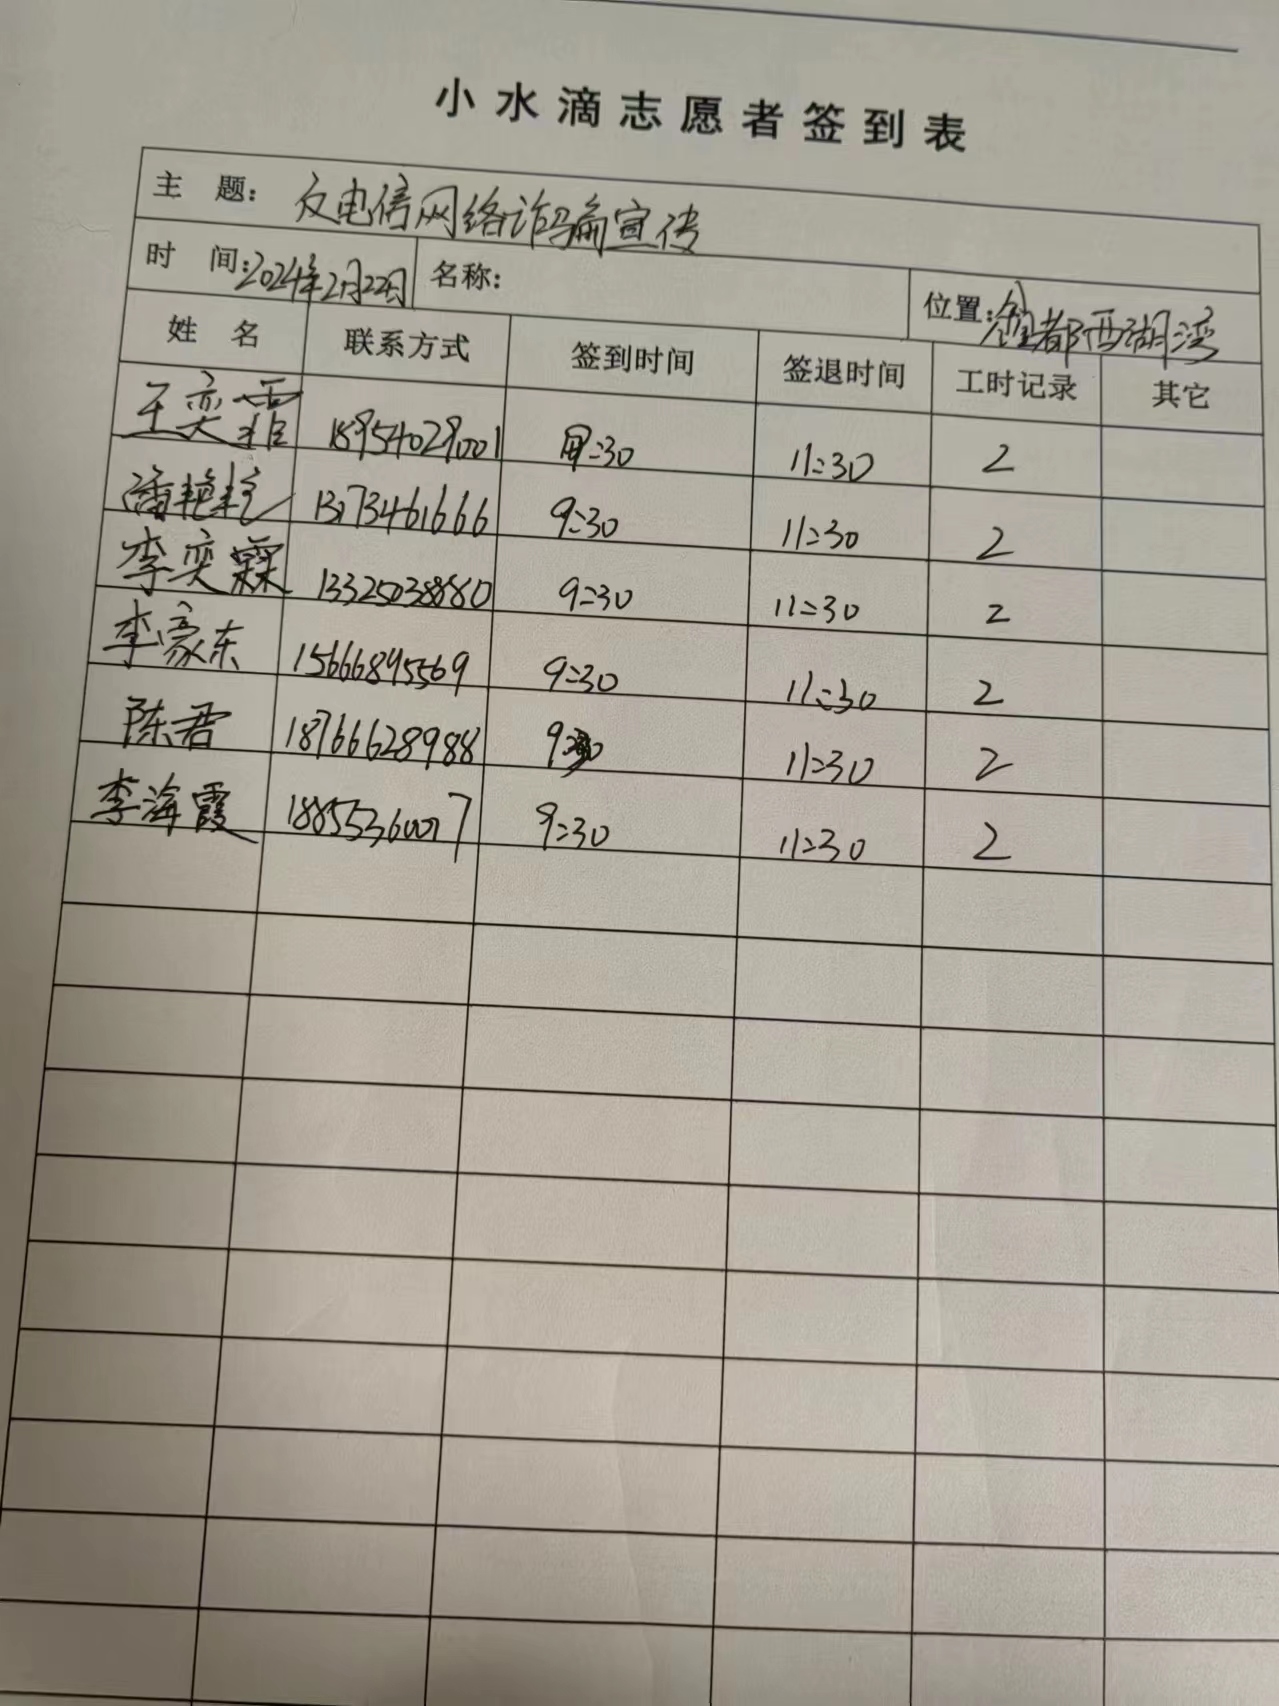 小水滴志愿者签到表
主 题: 反电信网络诈骗宣传
时 间: 2024年2月22日 名称: 位置: 都西湖湾
姓 名 联系方式 签到时间 签退时间 工时记录 其它
王奕霏 18954029001 9:30 11:30 2
潘艳艳 13173461666 9:30 11:30 2
李奕霖 13325038880 9:30 11:30 2
李豪东 15666895569 9:30 11:30 2
陈君 18766628988 9:30 11:30 2
李海霞 18855360017 9:30 11:30 2